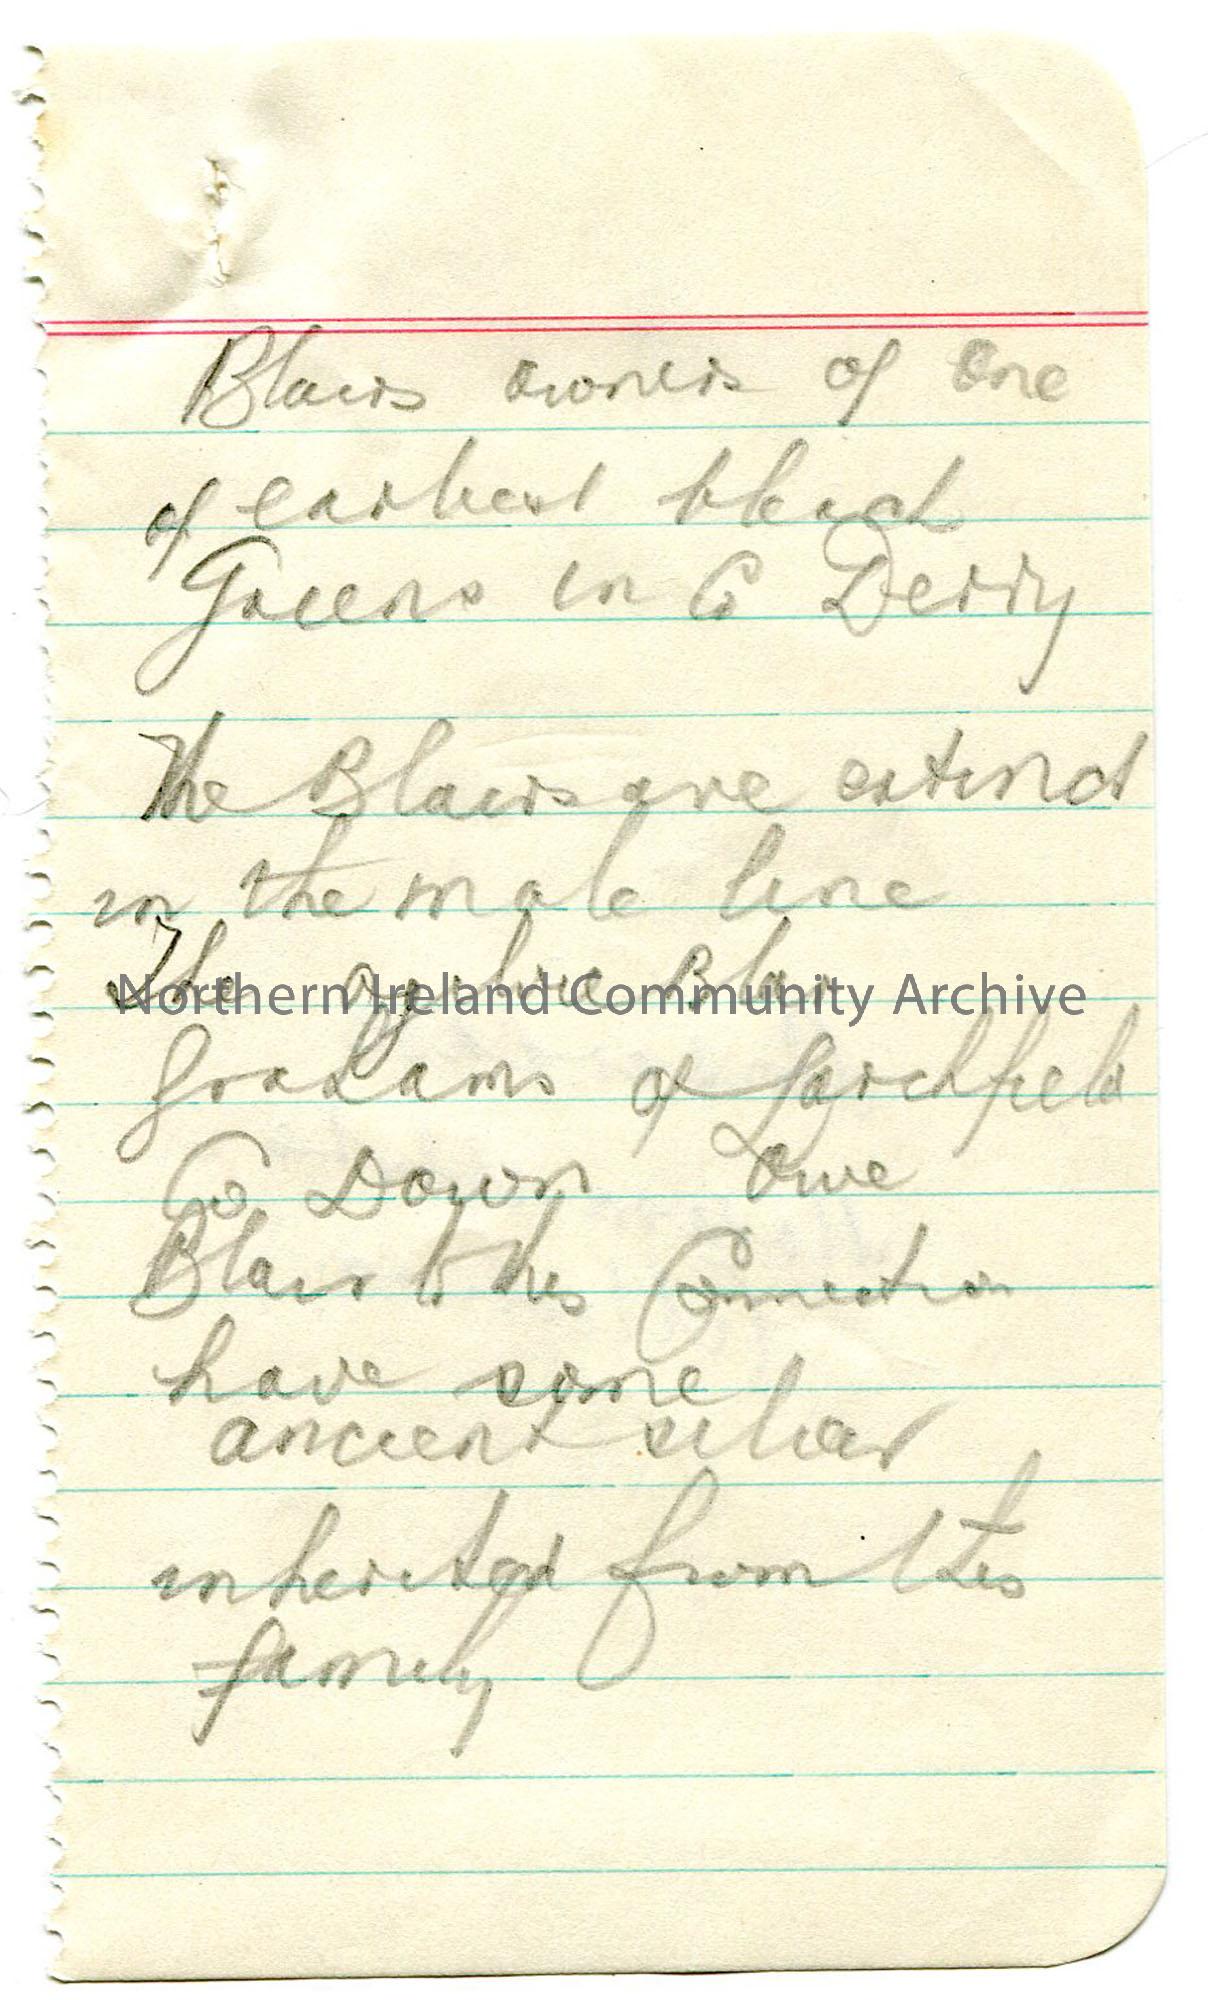 Blairs owners of one
of earliest bleach
Greens in Co Derry
The Blairs are extinct
in the male line
The Ogilvie Blair
Northern Ireland Community Archive
Grahams of Larchfield
Co Down Owe
Blair to this Connection
have some
ancient silver
inherited from this
family